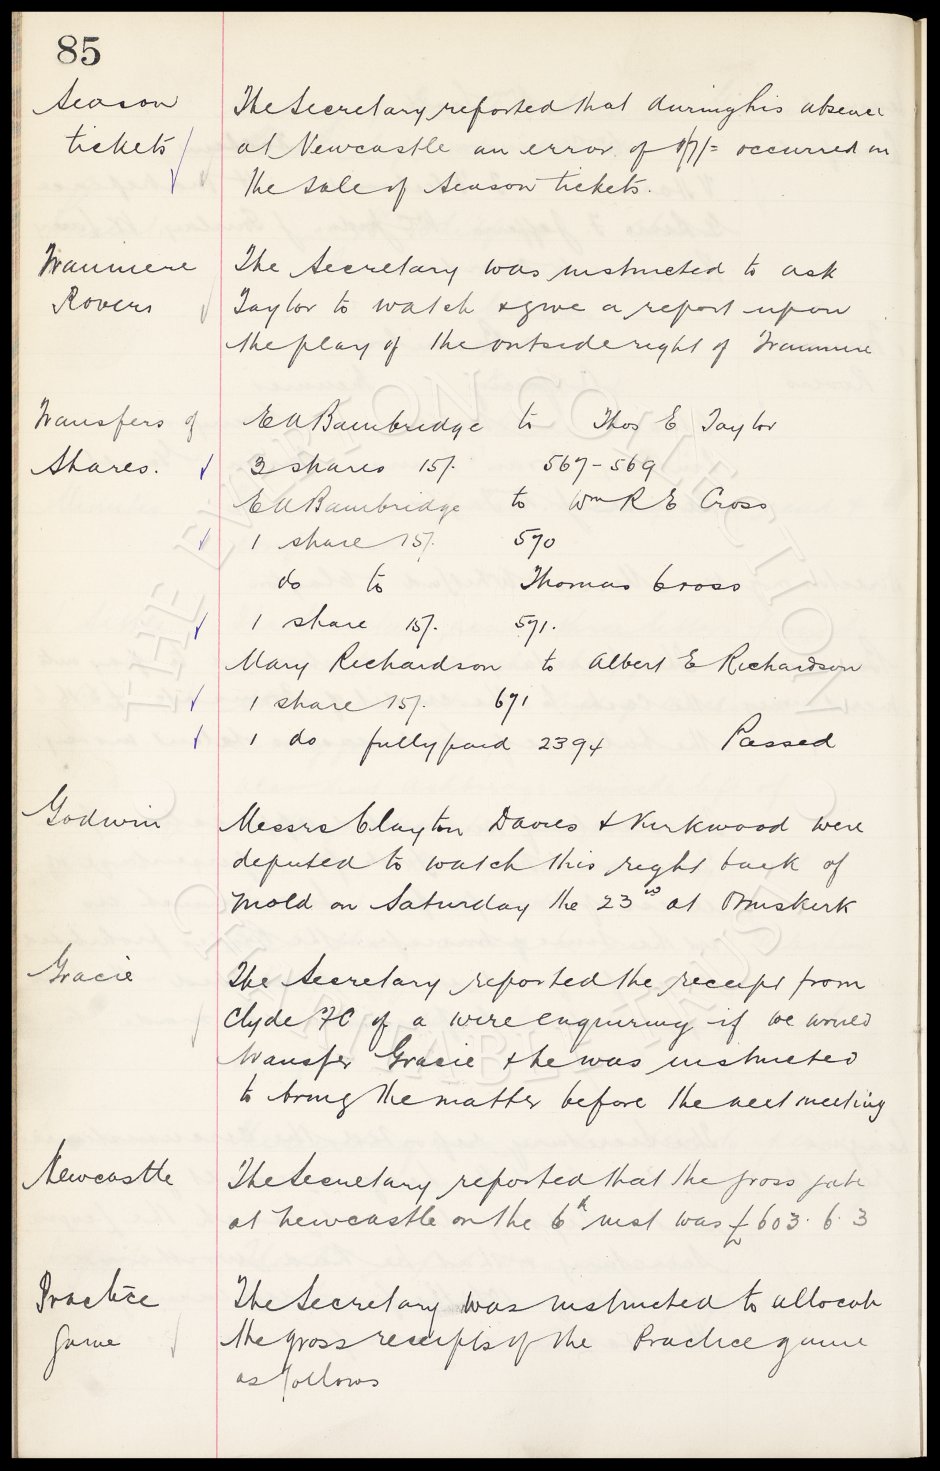 85
Season
tickets
The Secretary reported that during his absence
at Newcastle an error of occurred in
the sale of Season tickets.
Tranmere
Rovers
The Secretary was instructed to ask
Taylor to watch & give a report upon
the play of the outside right of Tranmere
Transfers of
Shares.
E A Bainbridge to Thos E Taylor
3 shares 15/- 567-569
E A Bainbridge to Wm R E Cross
1 share 15/- 570
do to Thomas Cross
1 share 15/- 571.
Mary Richardson to Albert E Richardson
1 share 15/- 671
1 do fully paid 2394 Passed
Godwin
Messrs Clayton Davies & Kirkwood were
deputed to watch this right back of
Mold on Saturday the 23rd at Ormskirk
Gracie
The Secretary reported the receipt from
Clyde FC of a wire enquiring if we would
transfer Gracie & he was instructed
to bring the matter before the next meeting
Newcastle
The Secretary reported that the gross gate
at Newcastle on the 6th inst was £603.6.3
Practice
game
The Secretary was instructed to allocate
the gross receipts of the Practice game
as follows